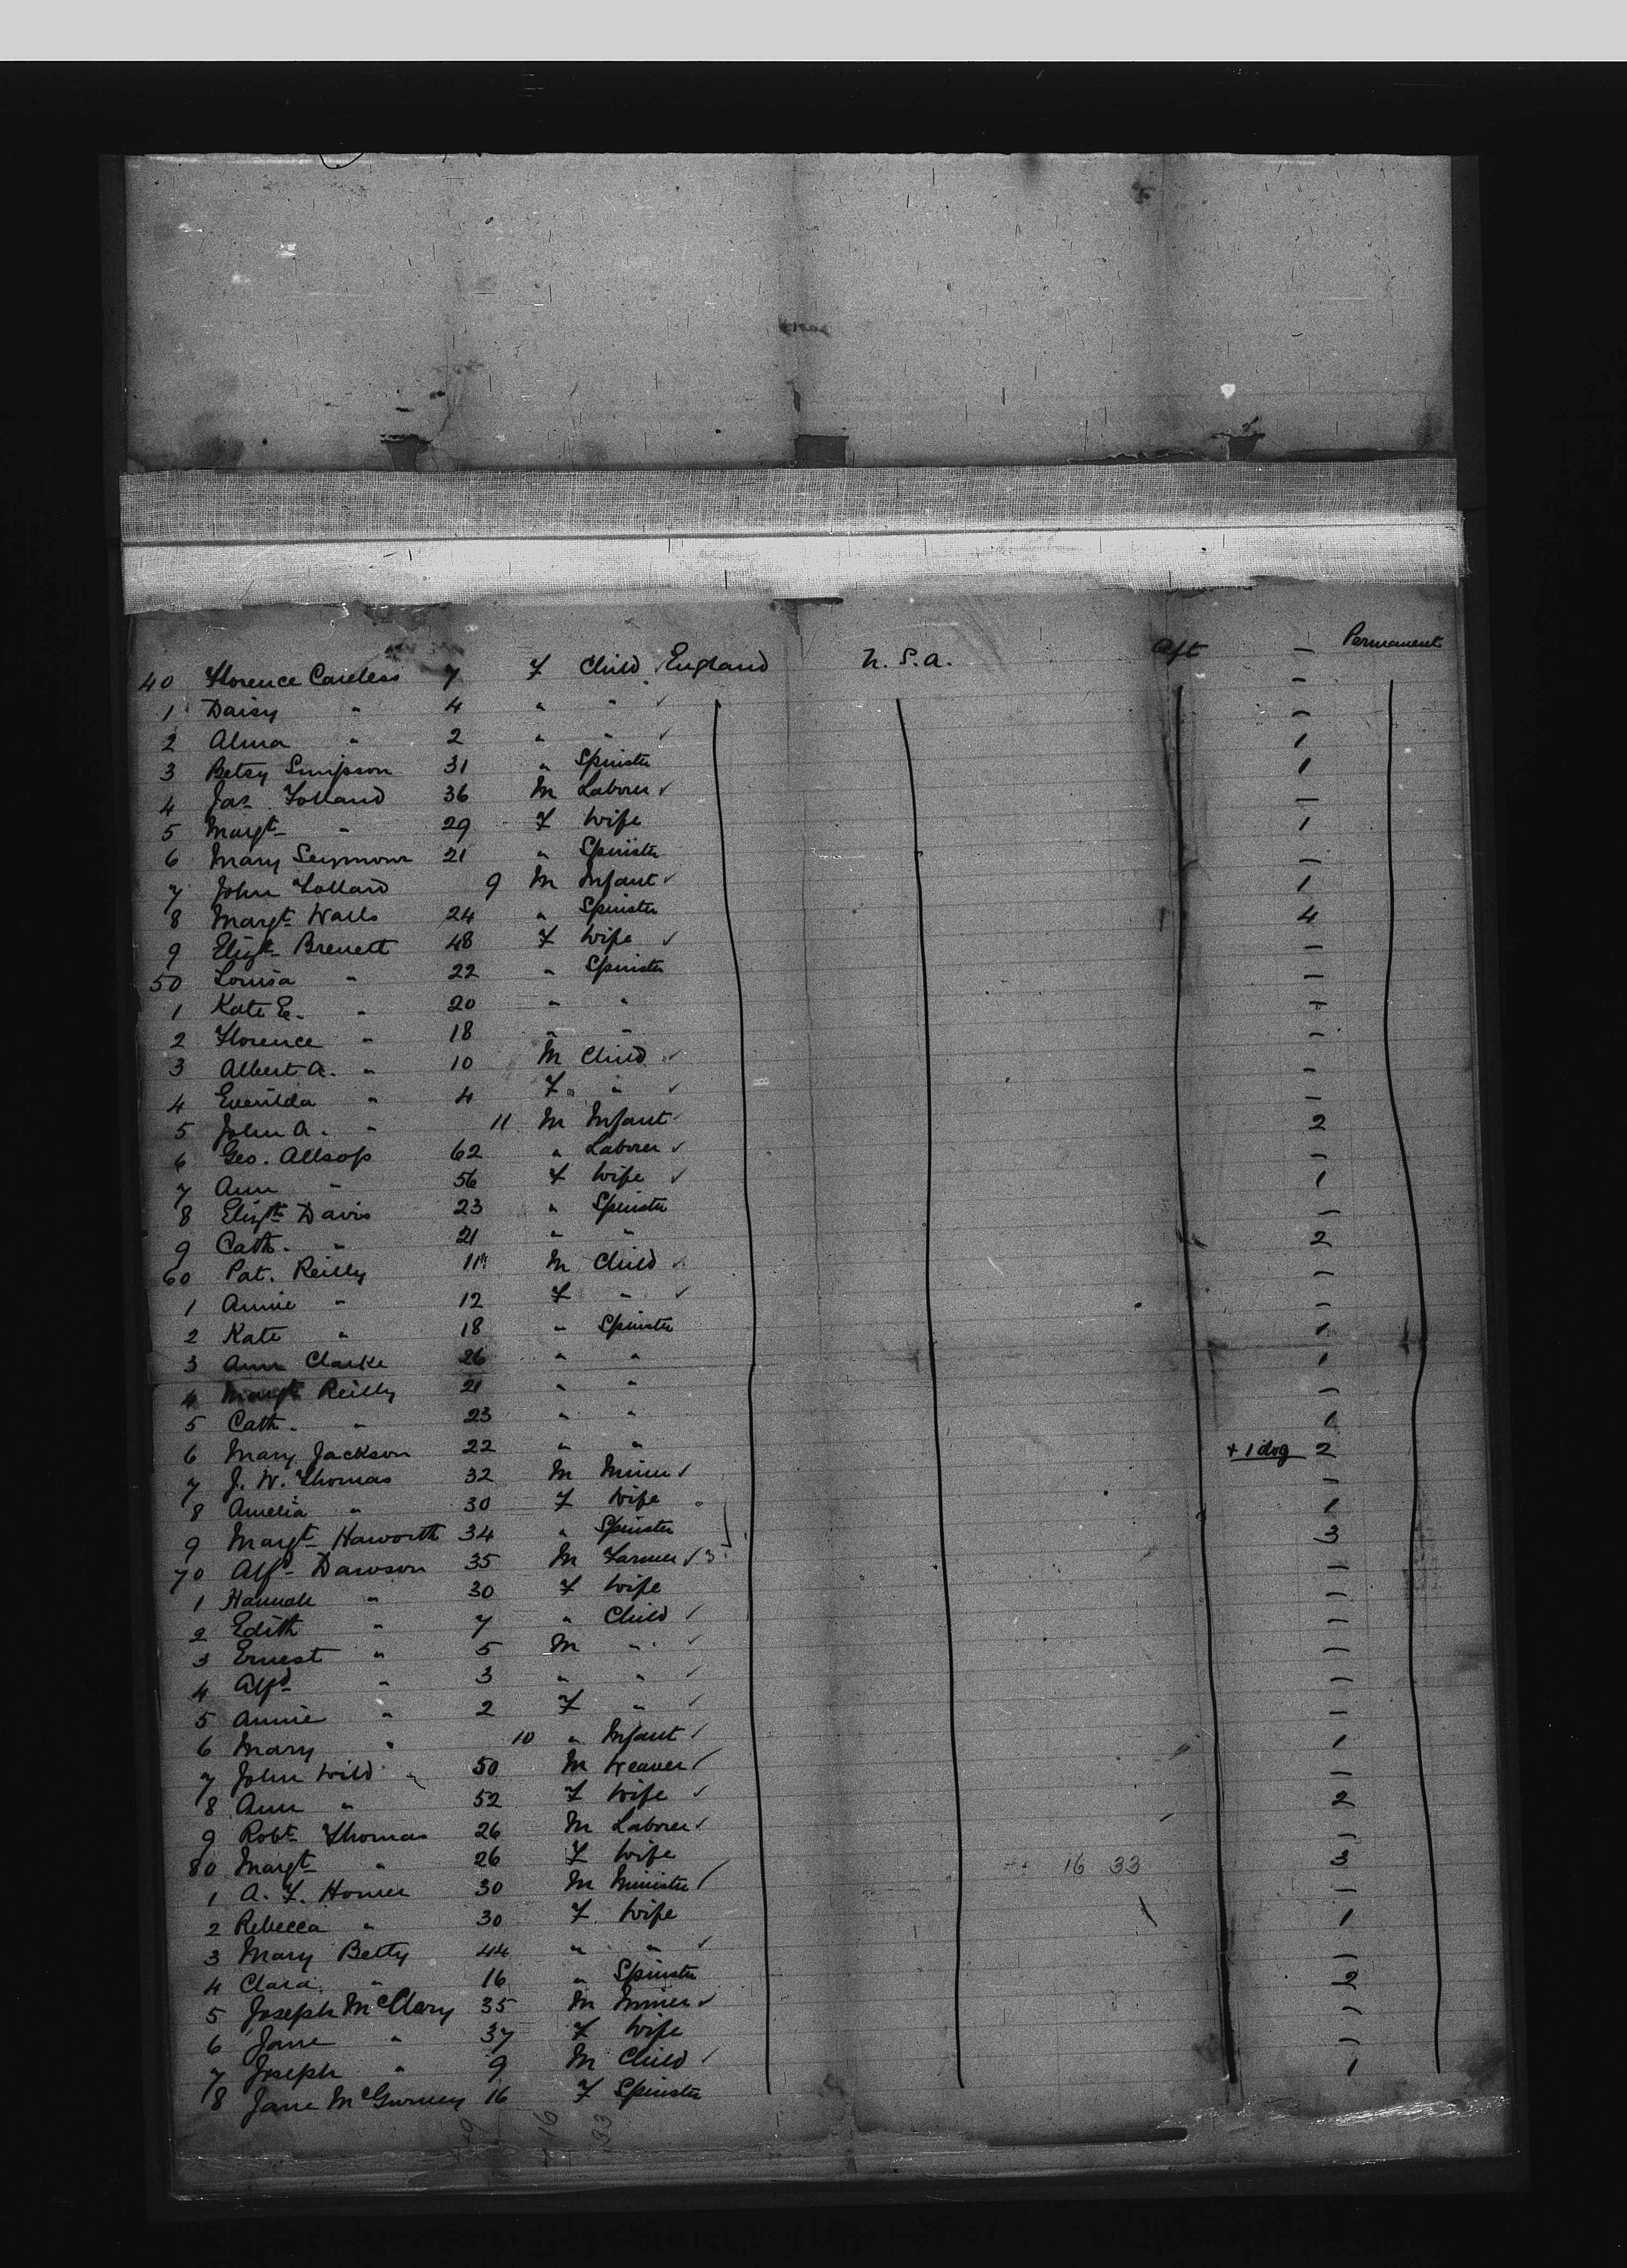 40 Florence Careless 7 F Child England U.S.A. Aft — Permanent
1 Daisy " 4 " " ✓ —
2 Alma " 2 " " ✓ —
3 Betsy Simpson 31 " Spinster 1
4 Jas. Tolland 36 M Laborer ✓ 1
5 Margt " 29 F Wife —
6 Mary Seymour 21 " Spinster 1
7 John Tolland 9 M Infant ✓ —
8 Margt Walls 24 " Spinster 1
9 Elizth Brenett 48 F Wife ✓ 4
50 Louisa " 22 " Spinster —
1 Kate E. " 20 " " —
2 Florence " 18 " " —
3 Albert A. " 10 M Child ✓ —
4 Everilda " 4 F " ✓ —
5 John A. " 11 M Infant ✓ —
6 Geo. Allsop 62 " Laborer ✓ 2
7 Ann " 56 F Wife ✓ —
8 Elizth Davis 23 " Spinster 1
9 Cath. " 21 " " —
60 Pat. Reilly 11 M Child ✓ 2
1 Annie " 12 F " ✓ —
2 Kate " 18 " Spinster —
3 Ann Clarke 26 " " 1
4 Margt Reilly 21 " " 1
5 Cath. " 23 " " —
6 Mary Jackson 22 " " 1
7 J. W. Thomas 32 M Miner ✓ + 1 dog 2
8 Amelia " 30 F Wife —
9 Margt Haworth 34 " Spinster 1
70 Alfd Dawson 35 M Farmer ✓ 3
1 Hannah " 30 F Wife —
2 Edith " 7 " Child ✓ —
3 Ernest " 5 M " ✓ —
4 Alfd " 3 " " ✓ —
5 Annie " 2 F " ✓ —
6 Mary " 10 " Infant ✓ —
7 John Wild 50 M Weaver ✓ 1
8 Ann " 52 F Wife ✓ —
9 Robt Thomas 26 M Laborer ✓ 2
80 Margt " 26 F Wife —
1 A. F. Homer 30 M Minister ✓ 16 33 3
2 Rebecca " 30 F Wife —
3 Mary Betty 44 " " ✓ 1
4 Clara " 16 " Spinster —
5 Joseph McClary 35 M Miner ✓ 2
6 Jane " 37 F Wife —
7 Joseph " 9 M Child ✓ —
8 Jane McGurney 16 F Spinster 1
16 33